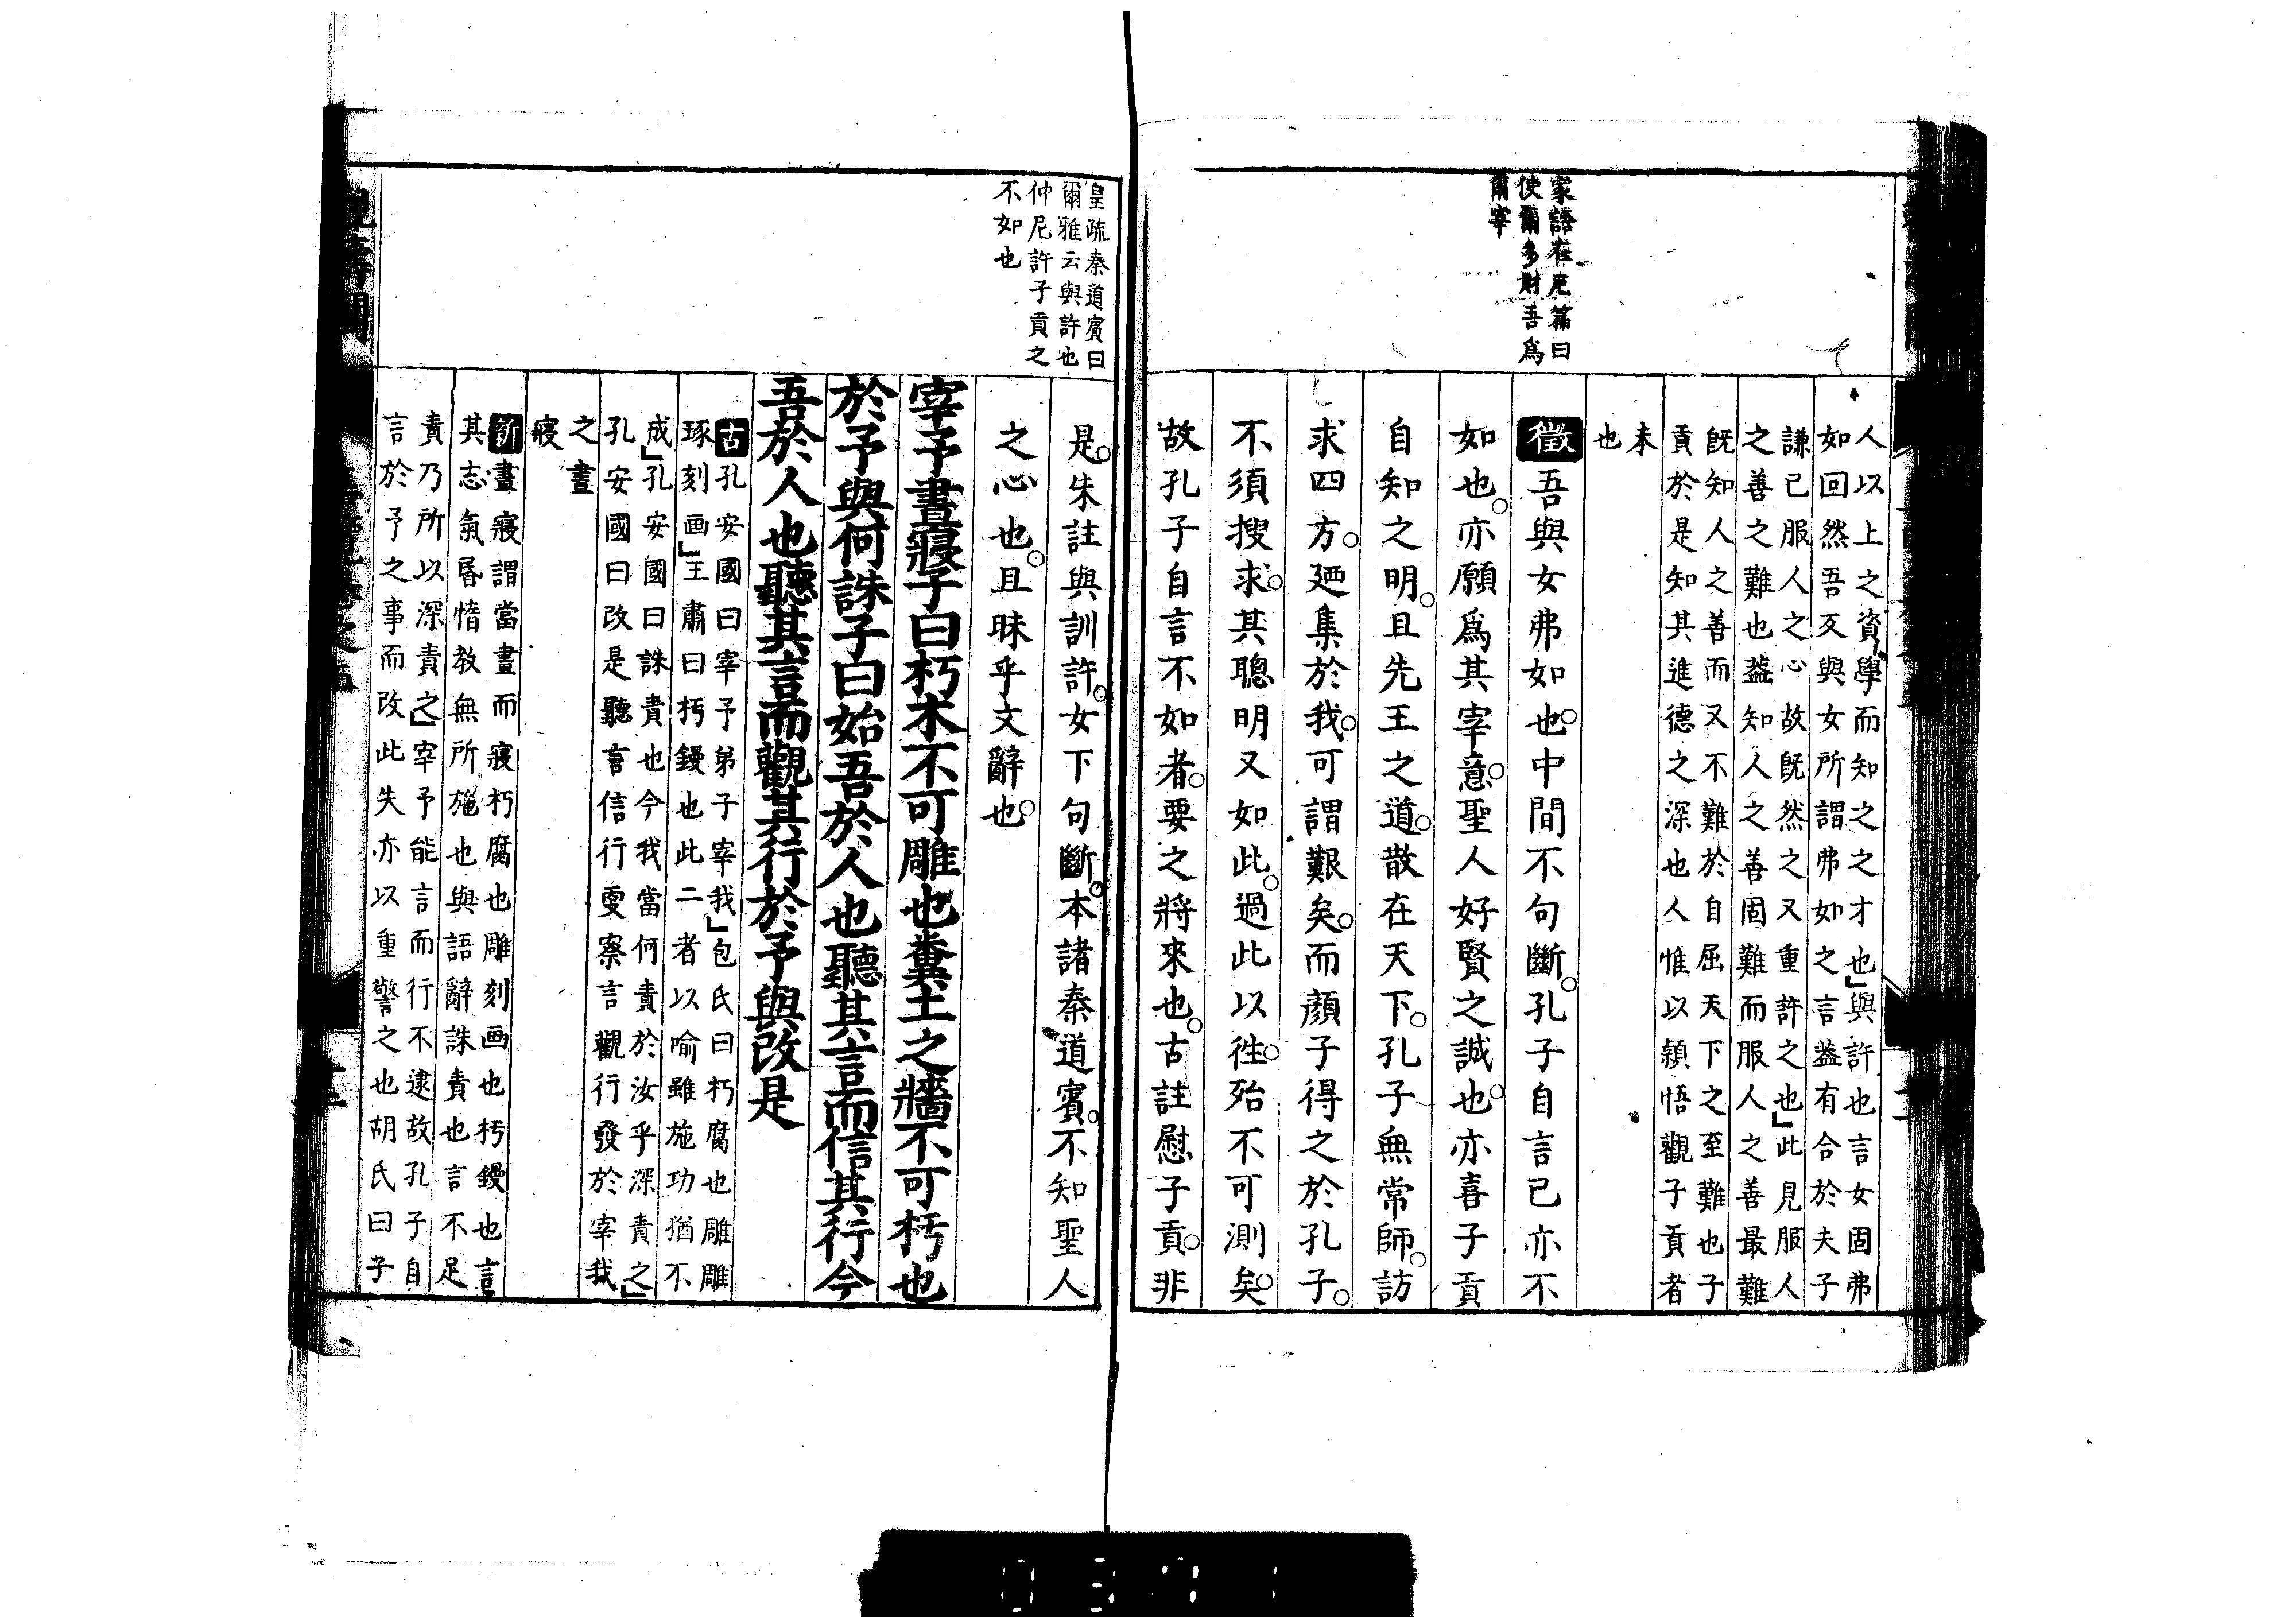 家語在厄篇曰
使爾多財吾爲
爾宰
人以上之資學而知之之才也與許也言女固弗
如回然吾亦與女所謂弗如之言蓋有合於夫子
謙己服人之心故旣然之又重許之也此見服人
之善之難也蓋知人之善固難而服人之善最難
旣知人之善而又不難於自屈天下之至難也子
貢於是知其進德之深也人惟以頴悟觀子貢者
末
也
徵吾與女弗如也中間不句斷孔子自言已亦不
如也亦願爲其宰意聖人好賢之誠也亦喜子貢
自知之明且先王之道散在天下孔子無常師訪
求四方廼集於我可謂艱矣而顏子得之於孔子
不須搜求其聰明又如此過此以徃殆不可測矣
故孔子自言不如者要之將來也古註慰子貢非
皇疏秦道賓曰
爾雅云與許也
仲尼許子貢之
不如也
是朱註與訓許女下句斷本諸秦道賓不知聖人
之心也且昧乎文辭也
宰予晝寢子曰朽木不可雕也糞土之牆不可杇也
於予與何誅子曰始吾於人也聽其言而信其行今
吾於人也聽其言而觀其行於予與改是
古孔安國曰宰予弟子宰我包氏曰朽腐也雕雕
琢刻画王肅曰杇鏝也此二者以喻雖施功猶不
成孔安國曰誅責也今我當何責於汝乎深責之
孔安國曰改是聽言信行更察言觀行發於宰我
之晝
寢
新晝寢謂當晝而寢朽腐也雕刻画也杇鏝也言
其志氣昬惰教無所施也與語辭誅責也言不足
責乃所以深責之宰予能言而行不逮故孔子自
言於予之事而改此失亦以重警之也胡氏曰子